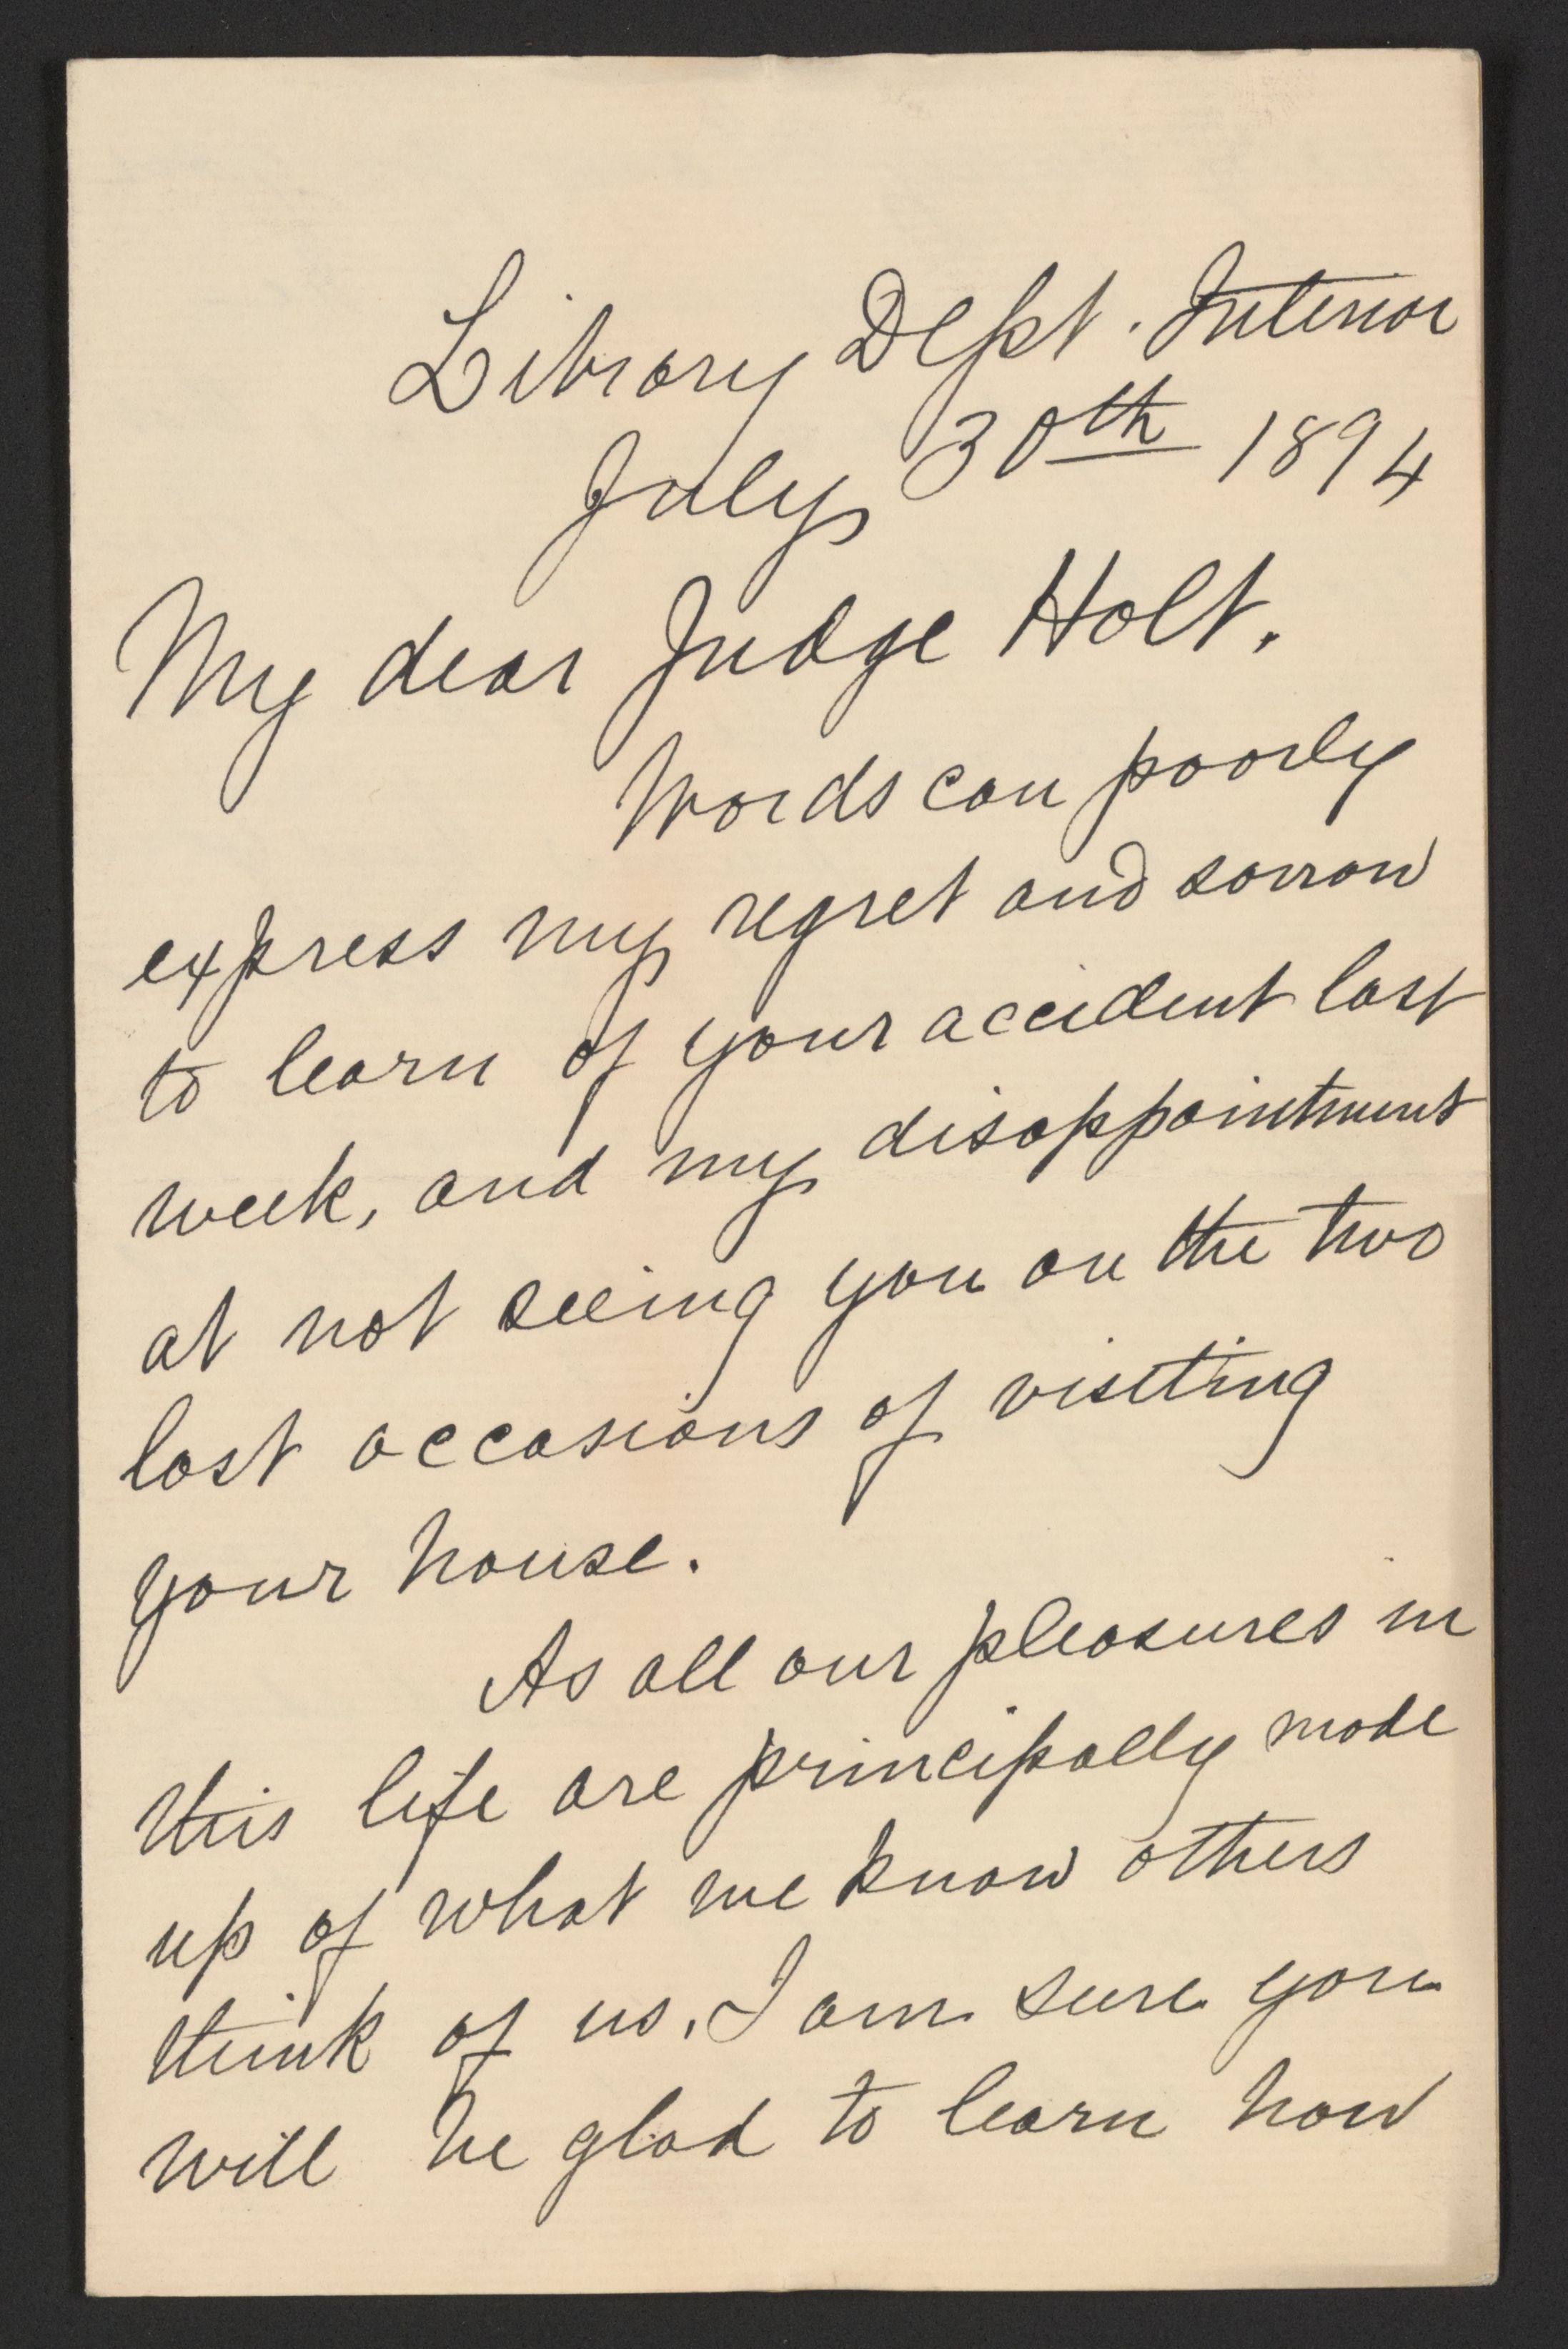 Library Dept. Interior
July 30th 1894
My dear Judge Holt.
Words can poorly
express my regret and sorrow
to learn of your accident last
week, and my disappointment
at not seeing you on the two
last occasions of visiting
your house.
As all our pleasures in
this life are principally made
up of what we know others
think of us, I am sure you
will be glad to learn how